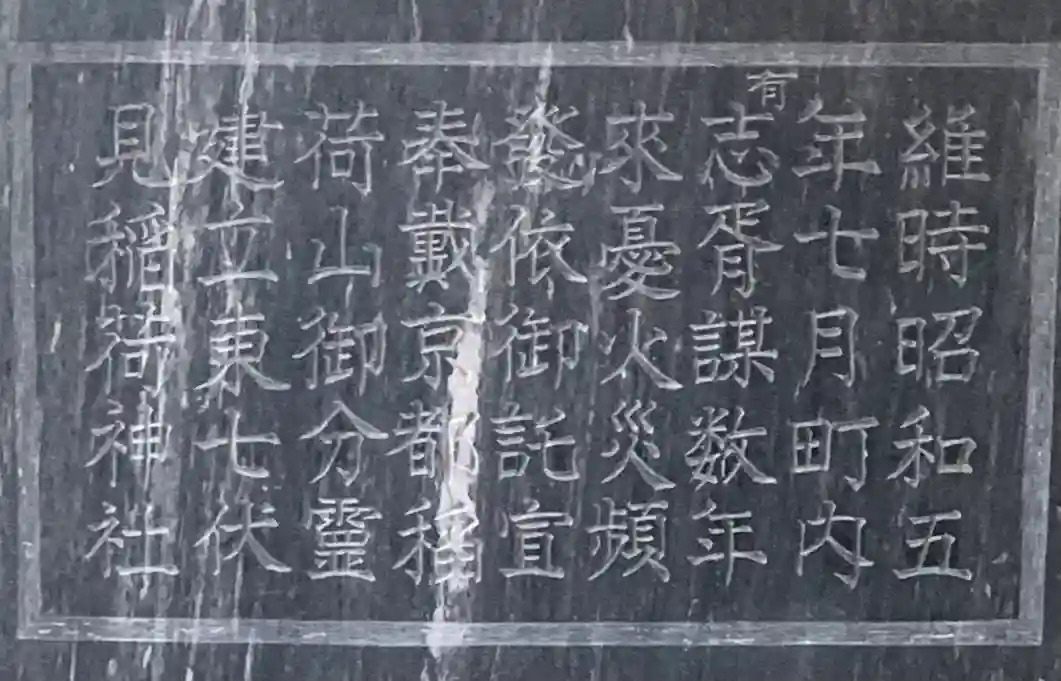 維時昭和五
年七月町内
有志胥謀数年
來憂火災頻
發依御託宣
奉戴京都稲
荷山御分靈
建立東七伏
見稲荷神社